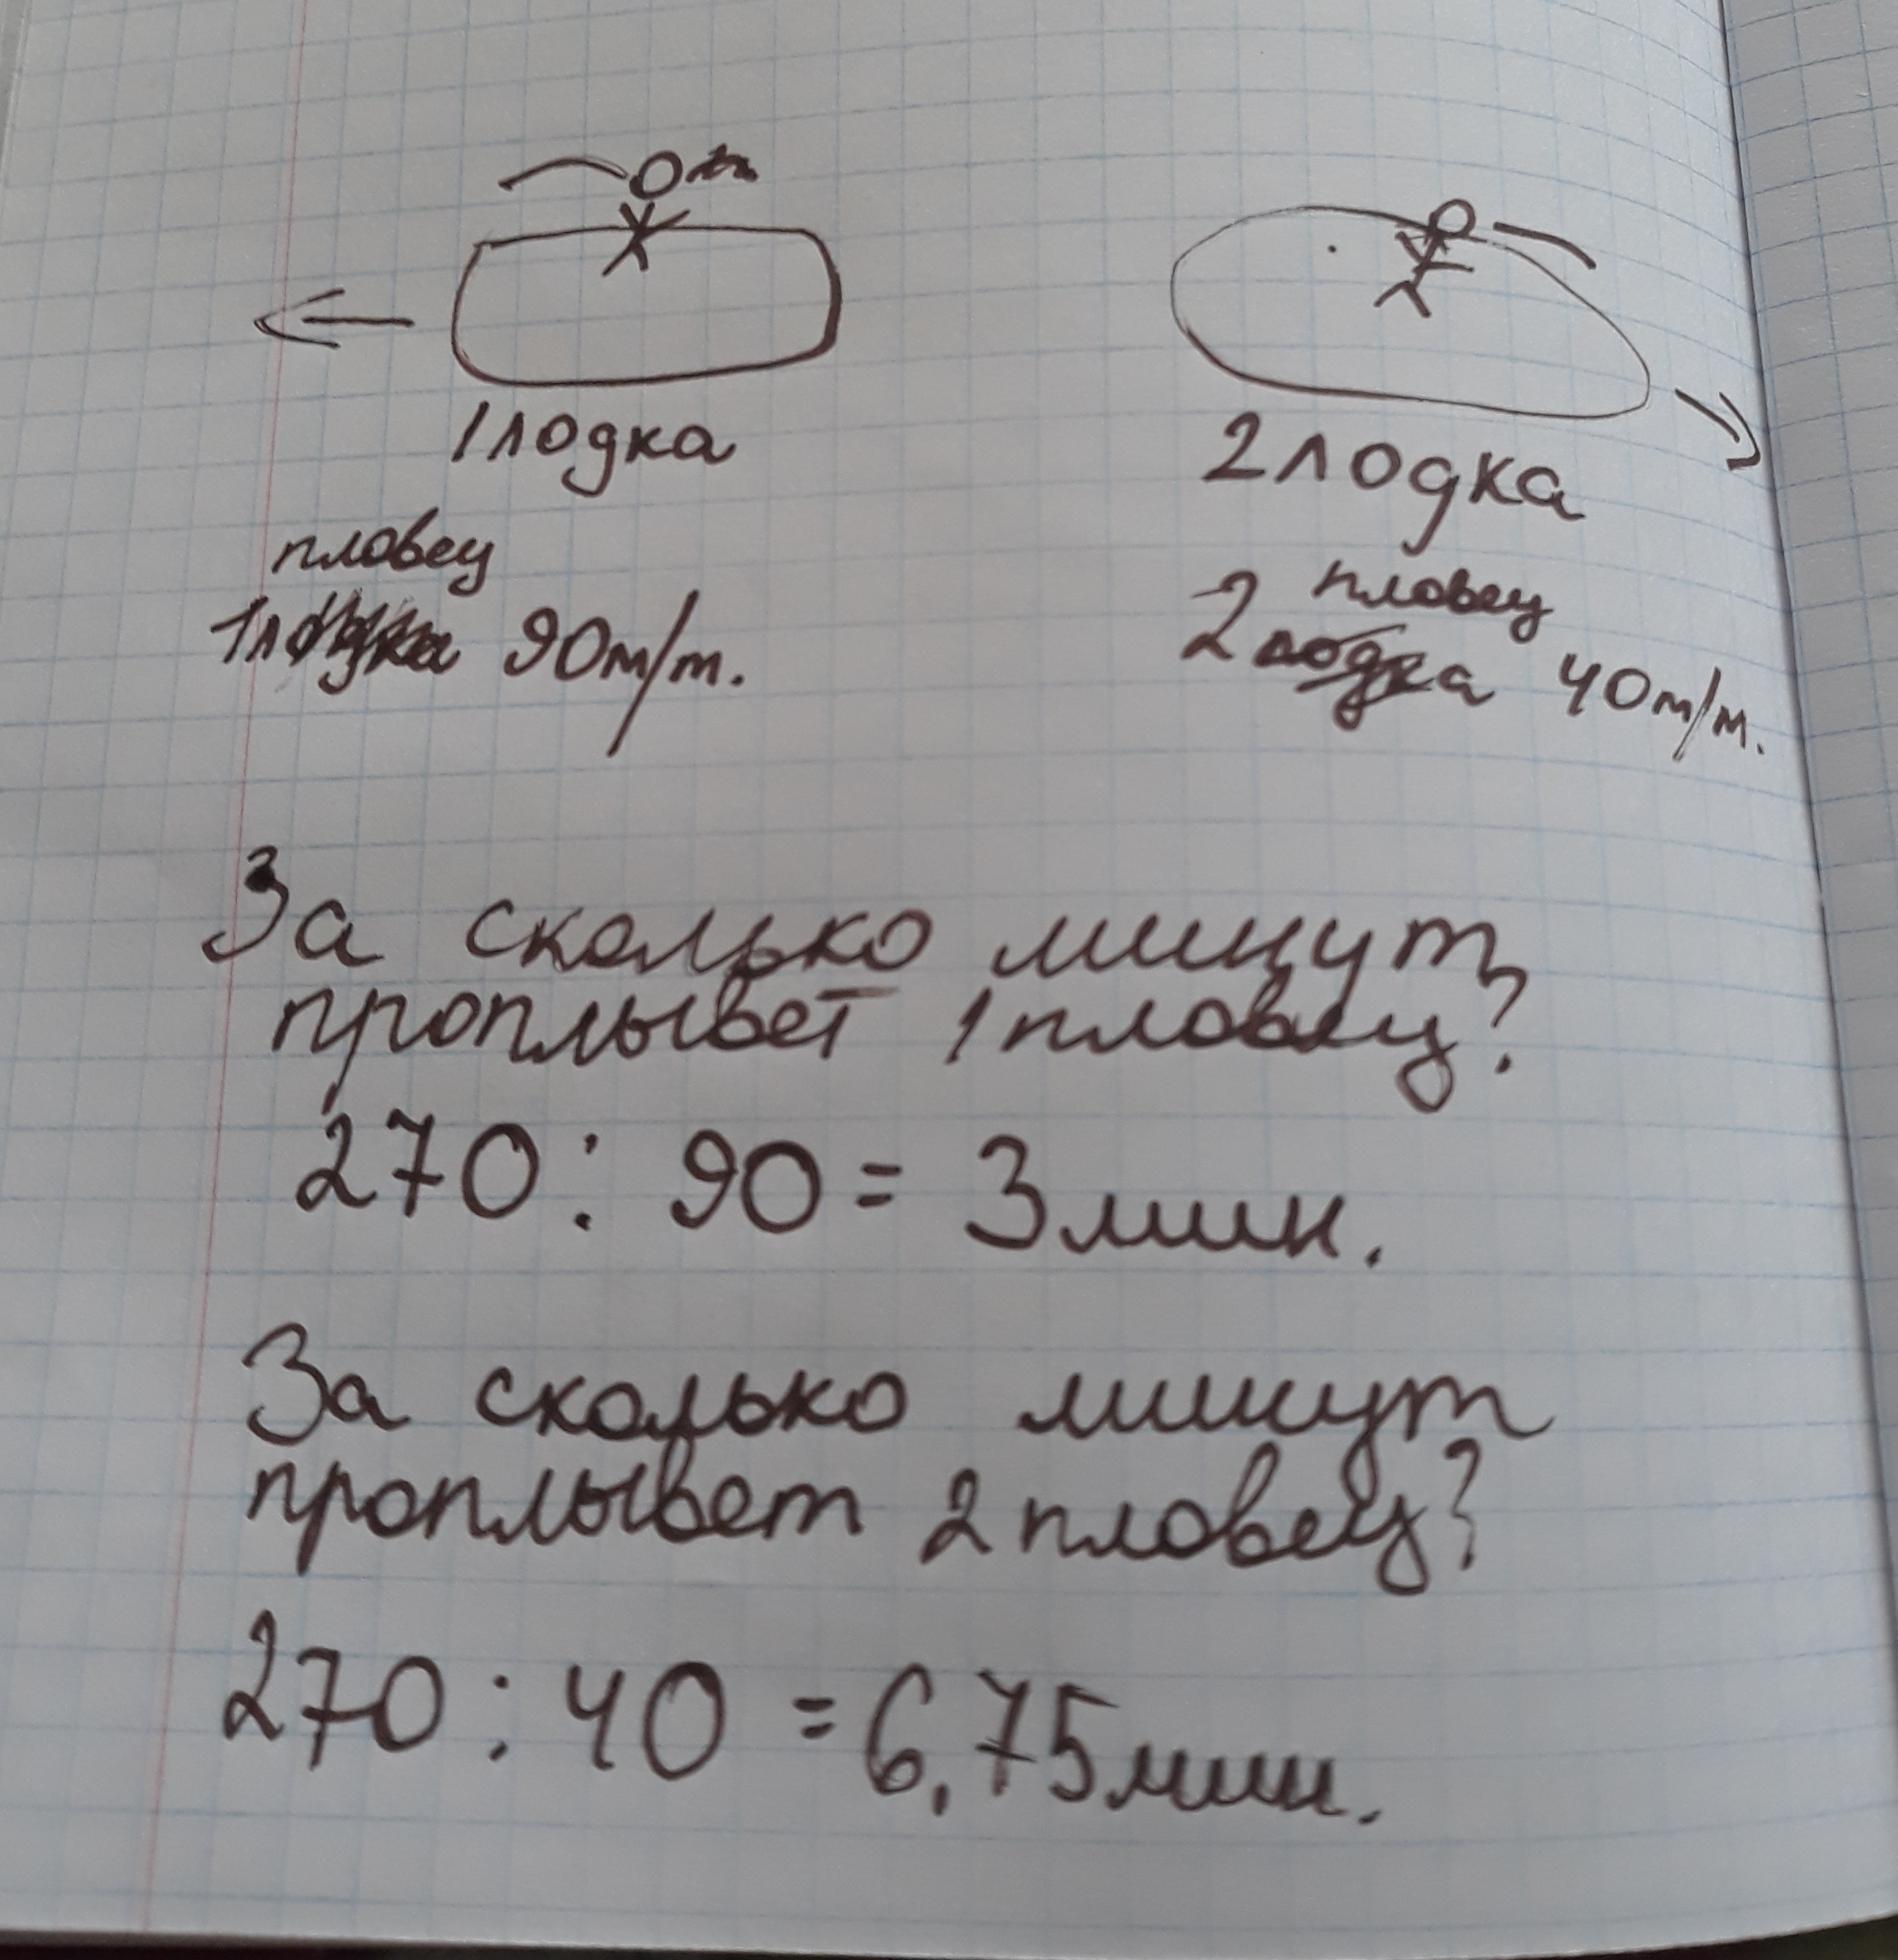 1 лодка
2 лодка
пловец
1 лодка 90м/т.
пловец
2 лодка 40м/м.
За сколько минут
проплывет 1 пловец?
270 : 90 = 3 мин.
За сколько минут
проплывет 2 пловец?
270 : 40 = 6,75 мин.